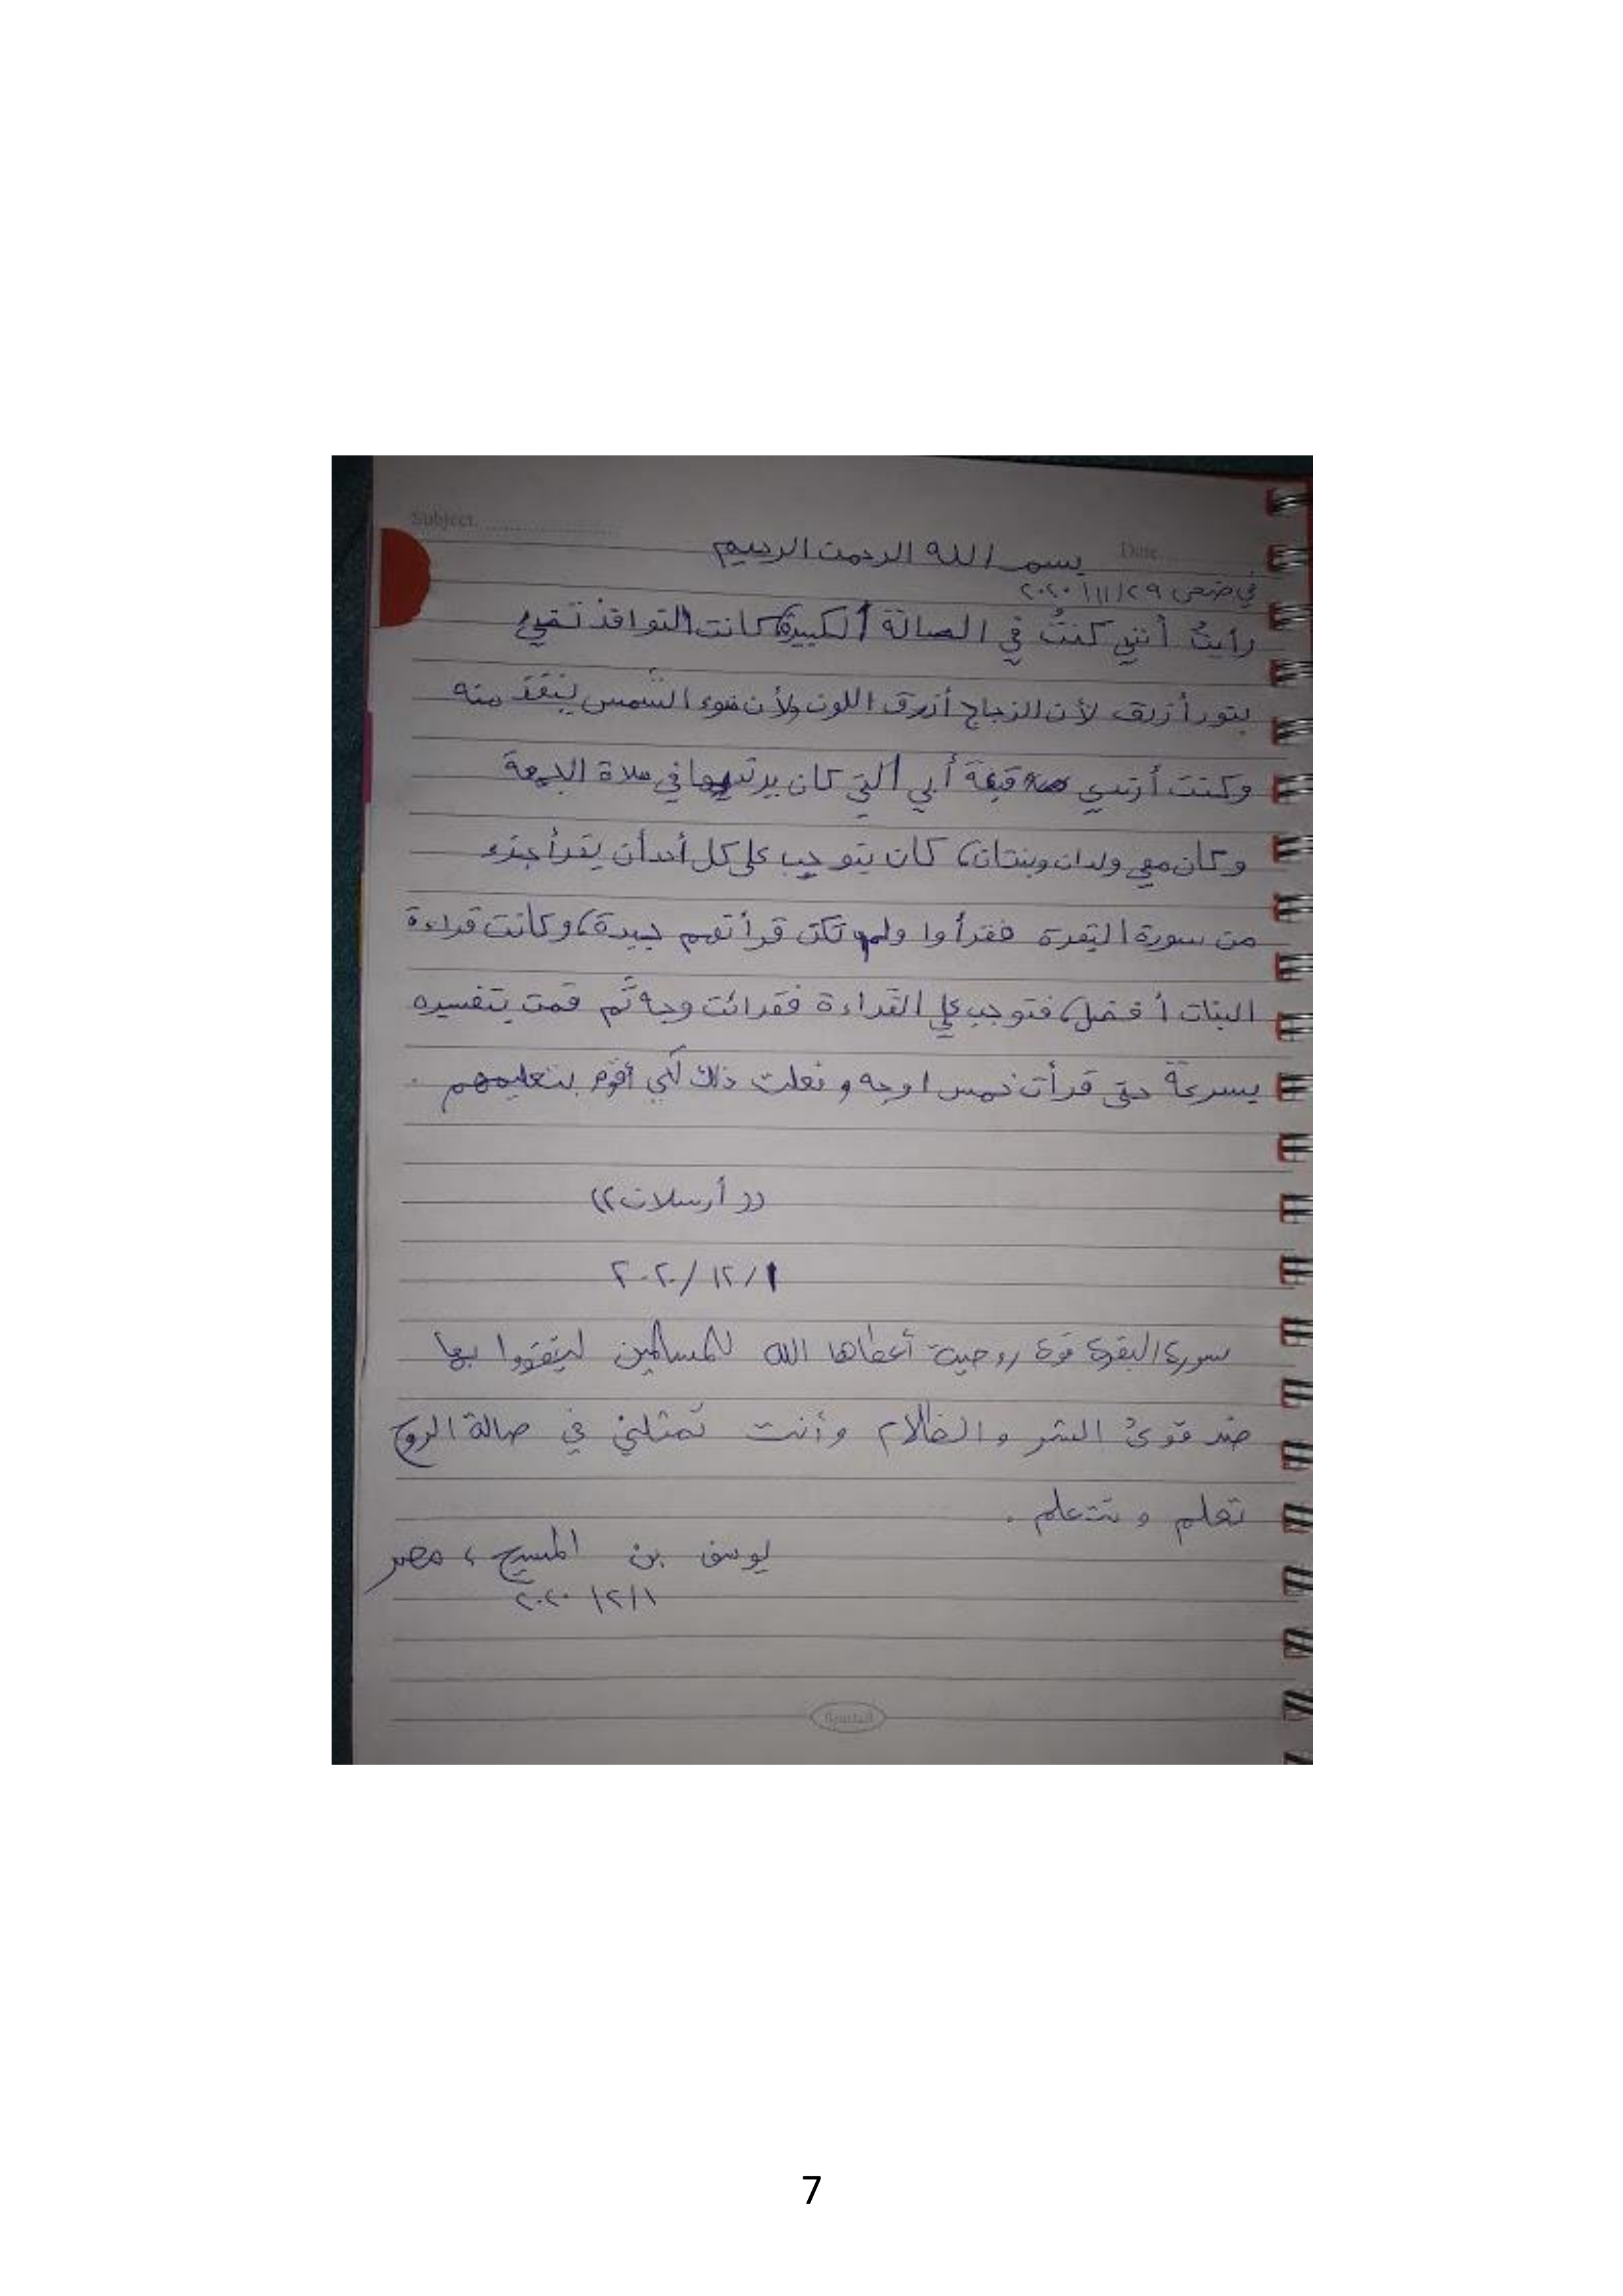 Subject
Date
بسم الله الرحمن الرحيم
في ضحى ٢٩/١١/٢٠٢٠
رأيتُ أنني كنتُ في الصالة الكبيرة، كانت النوافذ تضيئ
بنور أزرق لأن الزجاج أزرق اللون ولأن ضوء الشمس ينفذ منه
وكنت أرتدي قبعة أبي التي كان يرتديها في صلاة الجمعة
وكان معي ولدان وبنتان، كان يتوجب على كل أحد أن يقرأ جزء
من سورة البقرة فقرأوا ولم تكن قرأتهم جيدة، وكانت قراءة
البنات أفضل، فتوجب علي القراءة فقرائت وجه ثم قمت بتفسيره
بسرعة حتى قرأت خمس اوجه و فعلت ذلك لكي أقوم بتعليمهم .
((أرسلان))
١/١٢/٢٠٢٠
سورة البقرة قوة روحية أعطاها الله للمسلمين ليتقووا بها
ضد قوى الشر والظلام وأنت تمثلني في صالة الروح
تعلم و تتعلم .
يوسف بن المسيح ، مصر
١/١٢/٢٠٢٠
7